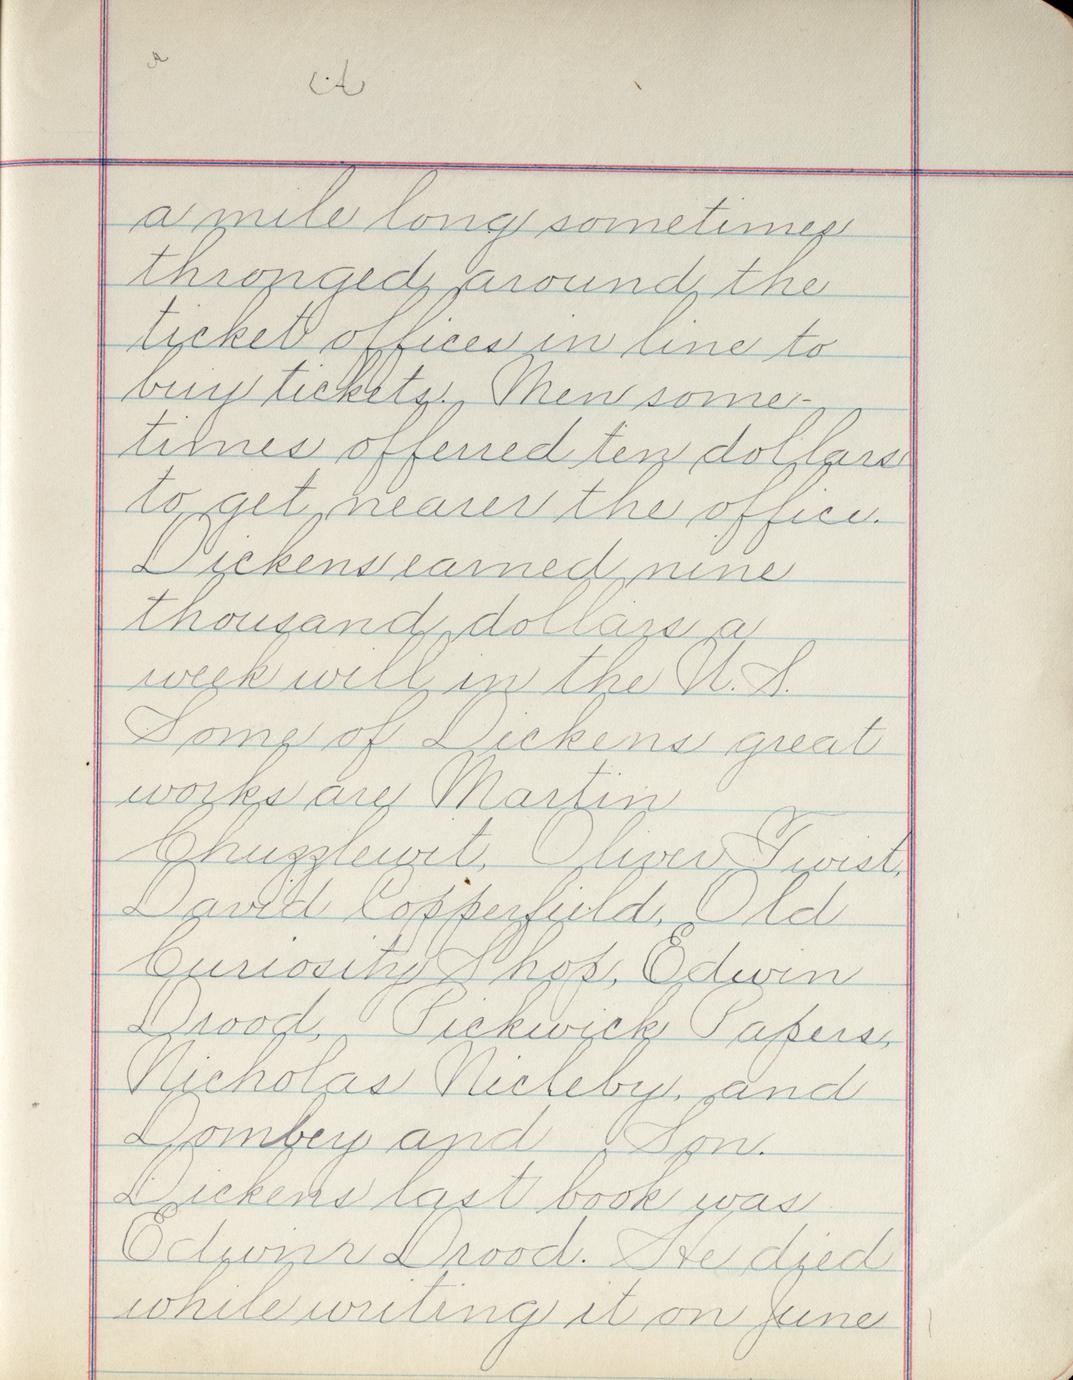 a mile long sometimes
thronged around the
ticket offices in line to
buy tickets. Men some-
times offerred ten dollars
to get nearer the office.
Dickens earned nine
thousand dollars a
week will in the U.S.
Some of Dickens great
works are Martin
Chuzzlewit, Oliver Twist,
David Copperfield, Old
Curiosity Shop, Edwin
Drood, Pickwick Papers,
Nicholas Nicleby, and
Dombey and Son.
Dickens last book was
Edwinn Drood. He died
while writing it on June